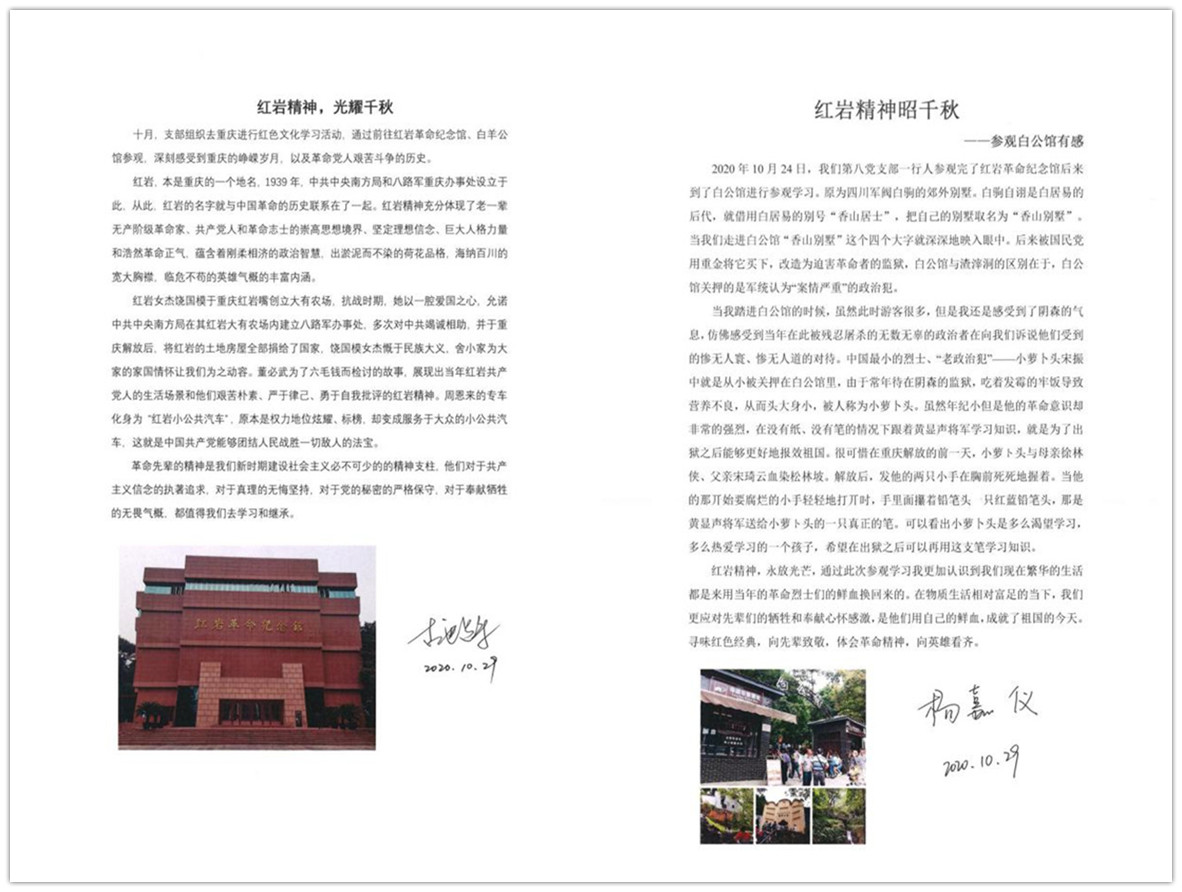 红岩精神，光耀千秋
十月，支部组织去重庆进行红色文化学习活动，通过前往红岩革命纪念馆、白羊公
馆参观，深刻感受到重庆的峥嵘岁月，以及革命党人艰苦斗争的历史。
红岩，本是重庆的一个地名，1939 年，中共中央南方局和八路军重庆办事处设立于
此，从此，红岩的名字就与中国革命的历史联系在了一起。红岩精神充分体现了老一辈
无产阶级革命家、共产党人和革命志士的崇高思想境界、坚定理想信念、巨大人格力量
和浩然革命正气，蕴含着刚柔相济的政治智慧，出淤泥而不染的荷花品格，海纳百川的
宽大胸襟，临危不苟的英雄气概的丰富内涵。
红岩女杰饶国模于重庆红岩嘴创立大有农场，抗战时期，她以一腔爱国之心，允诺
中共中央南方局在其红岩大有农场内建立八路军办事处，多次对中共竭诚相助，并于重
庆解放后，将红岩的土地房屋全部捐给了国家，饶国模女杰慨于民族大义、舍小家为大
家的家国情怀让我们为之动容。董必武为了六毛钱而检讨的故事，展现出当年红岩共产
党人的生活场景和他们艰苦朴素、严于律己、勇于自我批评的红岩精神。周恩来的专车
化身为“红岩小公共汽车”，原本是权力地位炫耀、标榜，却变成服务于大众的小公共汽
车，这就是中国共产党能够团结人民战胜一切敌人的法宝。
革命先辈的精神是我们新时期建设社会主义必不可少的的精神支柱，他们对于共产
主义信念的执著追求，对于真理的无悔坚持，对于党的秘密的严格保守，对于奉献牺牲
的无畏气概，都值得我们去学习和继承。
红岩革命纪念馆
2020.10.29
红岩精神昭千秋
——参观白公馆有感
2020 年 10 月 24 日，我们第八党支部一行人参观完了红岩革命纪念馆后来
到了白公馆进行参观学习。原为四川军阀白驹的郊外别墅。白驹自诩是白居易的
后代，就借用白居易的别号“香山居士”，把自己的别墅取名为“香山别墅”。
当我们走进白公馆“香山别墅”这个四个大字就深深地映入眼中。后来被国民党
用重金将它买下，改造为迫害革命者的监狱，白公馆与渣滓洞的区别在于，白公
馆关押的是军统认为“案情严重”的政治犯。
当我踏进白公馆的时候，虽然此时游客很多，但是我还是感受到了阴森的气
息，仿佛感受到当年在此被残忍屠杀的无数无辜的政治者在向我们诉说他们受到
的惨无人寰、惨无人道的对待。中国最小的烈士、“老政治犯”——小萝卜头宋振
中就是从小被关押在白公馆里，由于常年待在阴森的监狱，吃着发霉的牢饭导致
营养不良，从而头大身小，被人称为小萝卜头。虽然年纪小但是他的革命意识却
非常的强烈，在没有纸、没有笔的情况下跟着黄显声将军学习知识，就是为了出
狱之后能够更好地报效祖国。很可惜在重庆解放的前一天，小萝卜头与母亲徐林
侠、父亲宋琦云血染松林坡。解放后，发他的两只小手在胸前死死地握着。当他
的那开始要腐烂的小手轻轻地打开时，手里面攥着铅笔头一只红蓝铅笔头，那是
黄显声将军送给小萝卜头的一只真正的笔。可以看出小萝卜头是多么渴望学习，
多么热爱学习的一个孩子，希望在出狱之后可以再用这支笔学习知识。
红岩精神，永放光芒，通过此次参观学习我更加认识到我们现在繁华的生活
都是来用当年的革命烈士们的鲜血换回来的。在物质生活相对富足的当下，我们
更应对先辈们的牺牲和奉献心怀感激，是他们用自己的鲜血，成就了祖国的今天。
寻味红色经典，向先辈致敬，体会革命精神，向英雄看齐。
杨嘉仪
2020.10.29